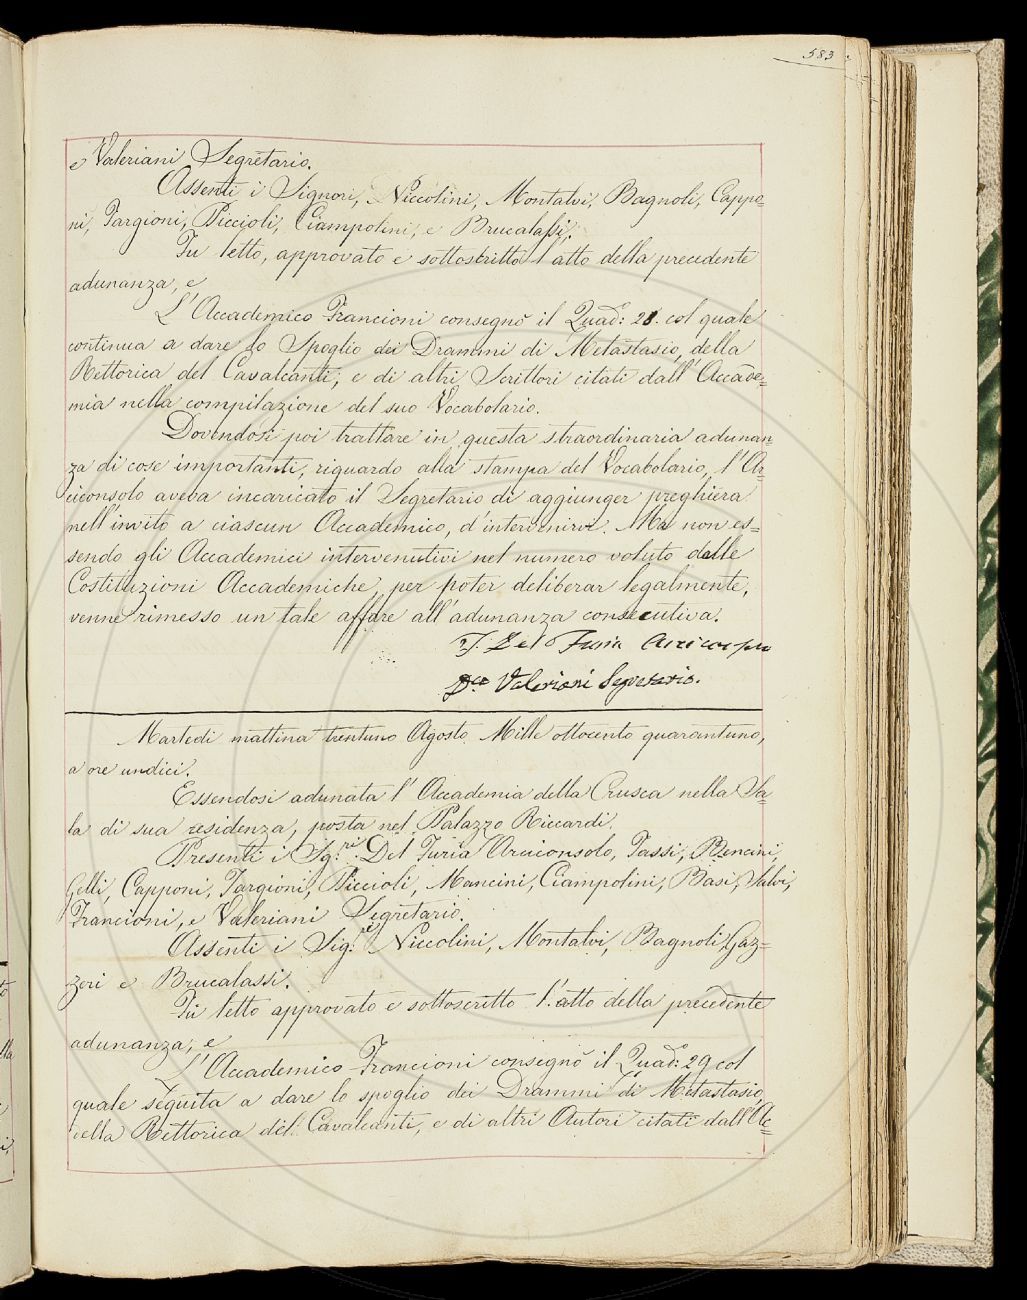 583
e Valeriani Segretario.
Assenti i Signori, Niccolini, Montalvi, Bagnoli, Cappo=
ni, Targioni, Piccioli, Ciampolini, e Brucalassi.
Fu letto, approvato e sottoscritto l'atto della precedente
adunanza, e
L'Accademico Francioni consegnò il Quad: 28. col quale
continua a dare lo Spoglio dei Drammi di Metastasio, della
Rettorica del Cavalcanti, e di altri Scrittori citati dall'Accade=
mia nella compilazione del suo Vocabolario.
Dovendosi poi trattare in questa straordinaria adunan=
za di cose importanti, riguardo alla stampa del Vocabolario, l'Ar=
ciconsolo aveva incaricato il Segretario di aggiunger preghiera
nell'invito a ciascun Accademico, d'intervenirvi. Ma non es=
sendo gli Accademici intervenutivi nel numero voluto dalle
Costituzioni Accademiche, per poter deliberar legalmente,
venne rimesso un tale affare all'adunanza consecutiva.
F. Del Furia Arciconsolo
Dre Valeriani Segretario.
Martedì mattina trentuno Agosto Mille ottocento quarantuno,
a ore undici.
Essendosi adunata l'Accademia della Crusca nella Sa=
la di sua residenza, posta nel Palazzo Riccardi.
Presenti i Sig:ri Del Furia Arciconsolo, Tassi, Bencini,
Gelli, Capponi, Targioni, Piccioli, Mancini, Ciampolini, Basi, Salvi,
Francioni, e Valeriani Segretario.
Assenti i Sig:ri Niccolini, Montalvi, Bagnoli, Gaz=
zeri e Brucalassi.
Fu letto approvato e sottoscritto l'atto della precedente
adunanza, e
L'Accademico Francioni consegnò il Quad: 29 col
quale séguita a dare lo spoglio dei Drammi di Metastasio,
della Rettorica del Cavalcanti, e di altri Autori citati dall'Ac=